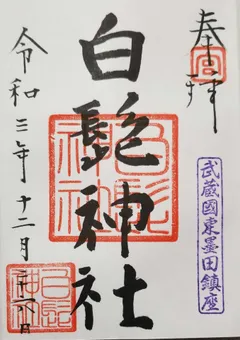 奉拝
武蔵國東墨田鎮座
白髭神社
白髭神社
令和三年十二月二十六日
白髭神社